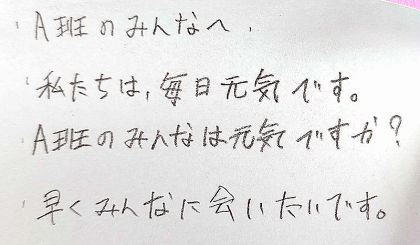 A班のみんなへ
私たちは、毎日元気です。
A班のみんなは元気ですか?
早くみんなに会いたいです。